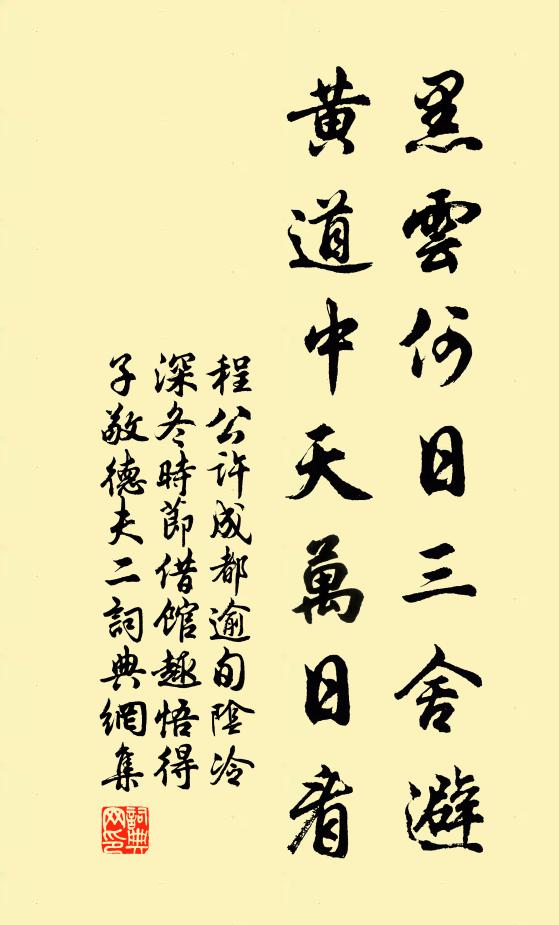 黑雲何日三舍避
黃道中天萬日看
程公許成都逾旬陰冷
深冬時節借館趣悟得
子敬德夫二詞典網集
詞典
网印